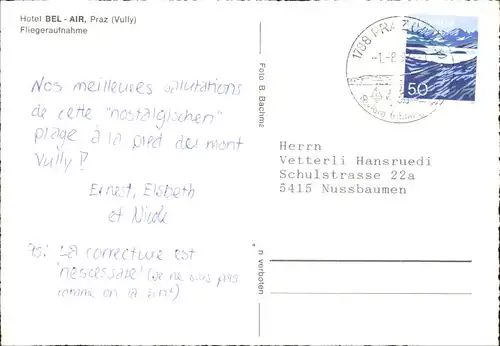 Hotel BEL - AIR, Praz (Vully)
Fliegeraufnahme
Nos meilleures salutations
de cette "nostalgischen"
plage à la pied del mont
Vully!
Ernest, Elsbeth
et Nicole
PS: La correcture est
"nescessaire" (je ne sais pas
comme on
Foto B. Bachma
n verboten
1788 PRAZ
50
Herrn
Vetterli Hansruedi
Schulstrasse 22a
5415 Nussbaumen